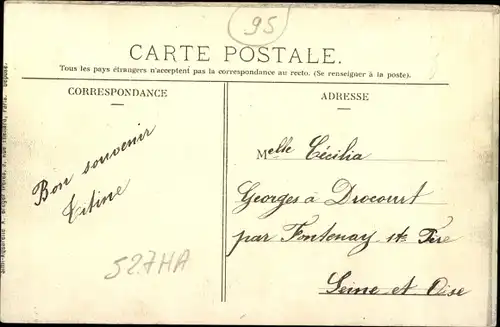 95
CARTE POSTALE.
Tous les pays étrangers n'acceptent pas la correspondance au recto. (Se renseigner à la poste).
CORRESPONDANCE
Bon souvenir
Titine
527HA
ADRESSE
Melle Cécilia
Georges à Drocourt
par Fontenay St Père
Seine et Oise